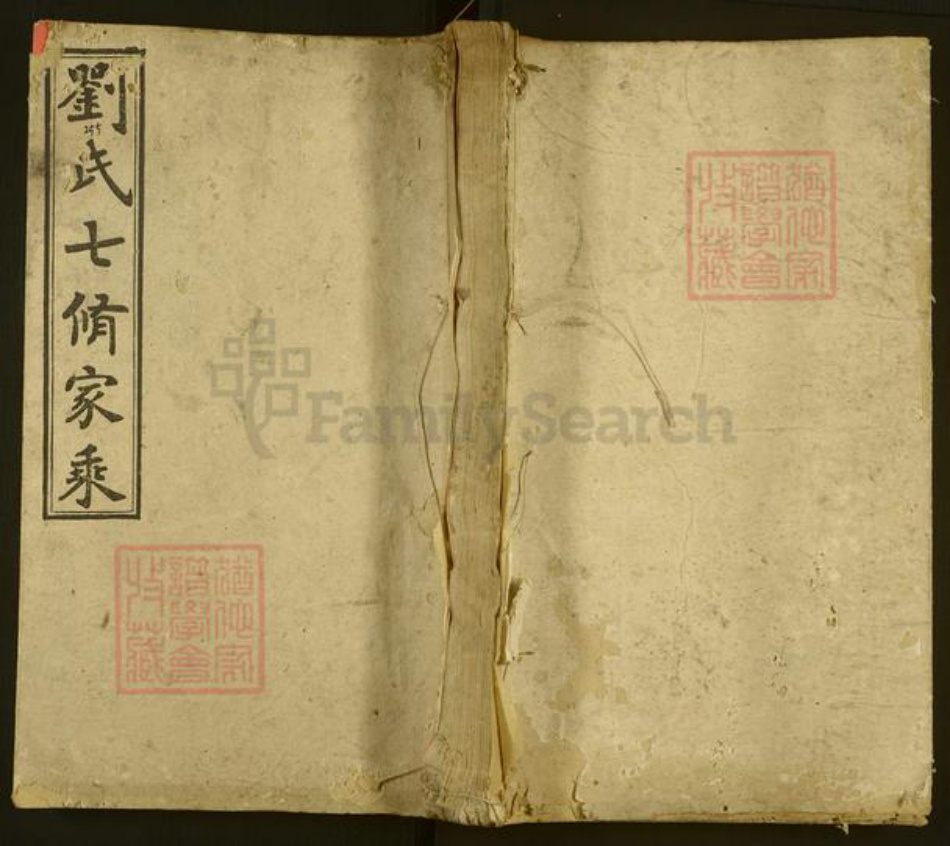 劉氏七脩家乘
猶他家
譜學會
收藏
猶他家
譜學會
收藏
FamilySearch